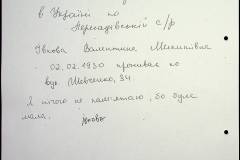 в Україні по
Переадівській с/р
Іккова Валентина Микитівна
02.02.1930 проживає по
вул. Шевченко, 34.
Я нічого не пам'ятаю, бо була
мала.